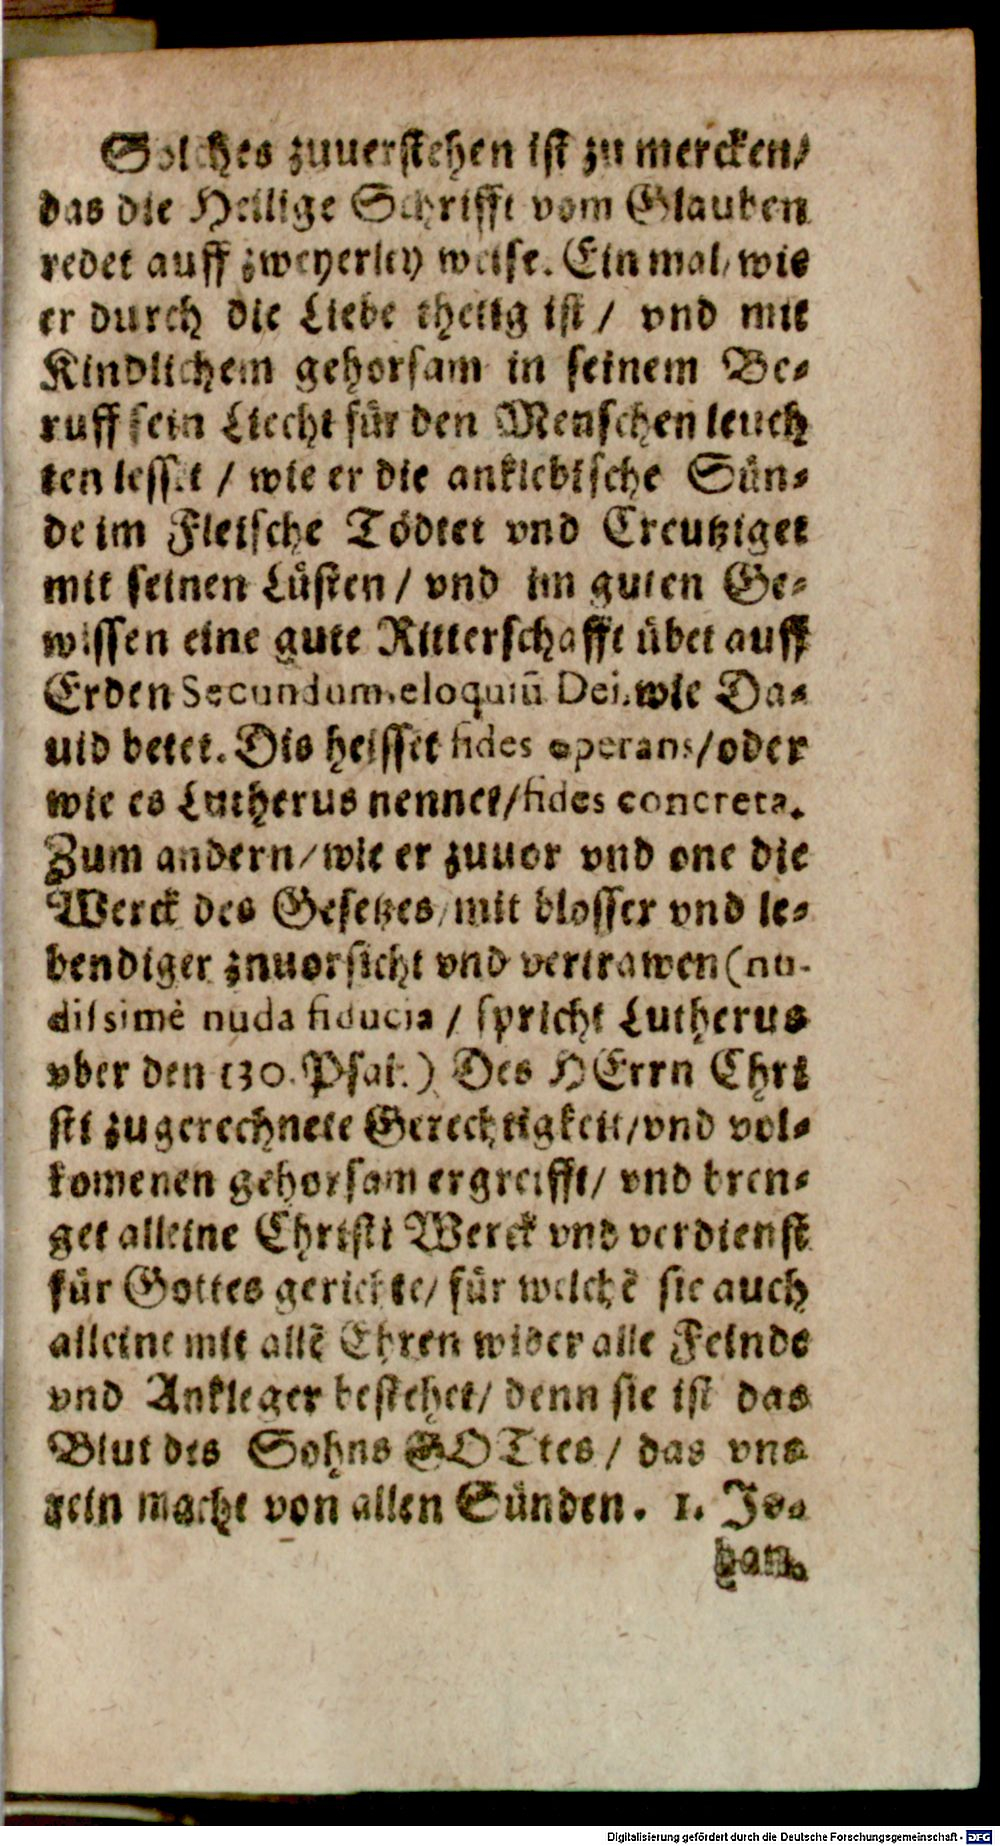 Solches zuuerstehen ist zu mercken/
das die Heilige Schrifft vom Glauben
redet auff zweyerley weise. Ein mal/ wie
er durch die Liebe thetig ist / vnd mit
Kindlichem gehorsam in seinem Be-
ruff sein Liecht für den Menschen leuch
ten lesset / wie er die anklebische Sün-
de im Fleische Tödtet vnd Creutziget
mit seinen Lüsten / vnd im guten Ge-
wissen eine gute Ritterschafft übet auff
Erden Secundum eloquiū Dei, wie Da-
uid betet. Dis heisset fides operans/ oder
wie es Lutherus nennet/ fides concreta.
Zum andern/ wie er zuuor vnd one die
Werck des Gesetzes/ mit blosser vnd le-
bendiger znuorsicht vnd vertrawen (nu-
dissimè nuda fiducia / spricht Lutherus
vber den 130. Psal.) Des HErrn Chri
sti zugerechnete Gerechtigkeit/ vnd vol-
komenen gehorsam ergreifft/ vnd bren-
get alleine Christi Werck vnd verdienst
für Gottes gerichte/ für welchē sie auch
alleine mit allē Ehren wider alle Feinde
vnd Ankleger bestehet/ denn sie ist das
Blut des Sohns GOTtes / das vns
rein macht von allen Sünden. 1. Jo-
han.
Digitalisierung gefördert durch die Deutsche Forschungsgemeinschaft - DFG